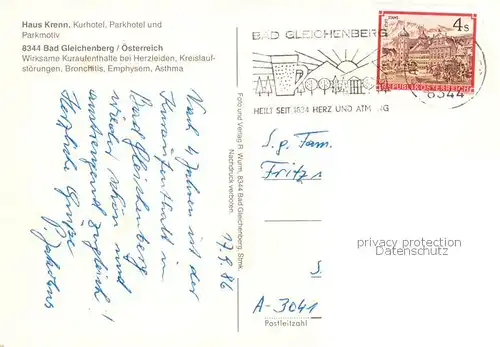 Haus Krenn, Kurhotel, Parkhotel und
Parkmotiv
8344 Bad Gleichenberg / Österreich
Wirksame Kuraufenthalte bei Herzleiden, Kreislauf-
störungen, Bronchitis, Emphysem, Asthma
Nach 4 Jahren ist der
Kuraufenthalt in
Bad Gleichenberg
wieder schön und
anstrengend zugleich!
Herzliche Grüße
J. Jakobus
17.9.86
Foto und Verlag R. Wurm, 8344 Bad Gleichenberg, Stmk.
Nachdruck verboten.
BAD GLEICHENBERG
HEILT SEIT 1834 HERZ UND ATM NG
8344
4 S
REPUBLIK ÖSTERREICH
S.g. Fam.
Fritz
S
A-3041
Postleitzahl
privacy protection
Datenschutz